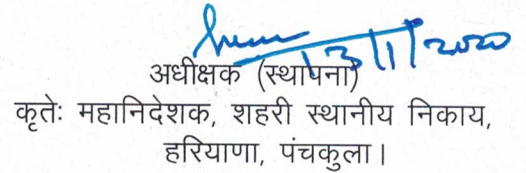 13/1/2020
अधीक्षक (स्थापना)
कृतेः महानिदेशक, शहरी स्थानीय निकाय,
हरियाणा, पंचकुला।